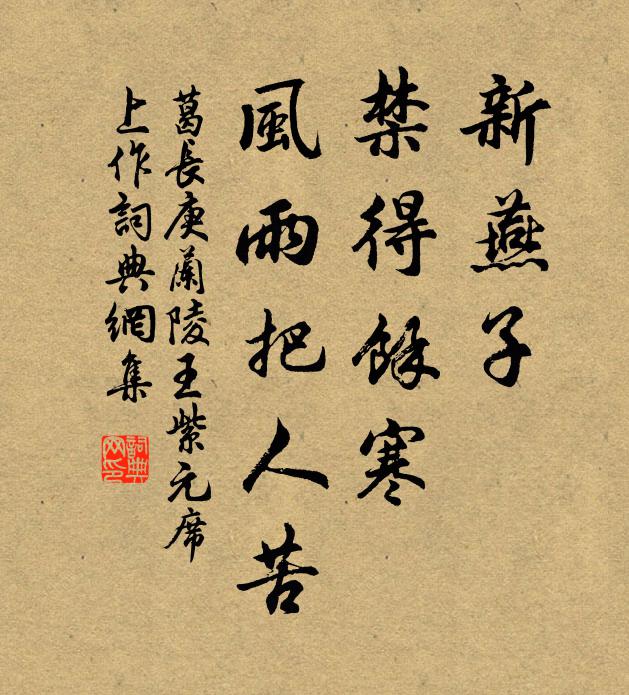 新燕子
禁得餘寒
風雨把人苦
葛長庚蘭陵王紫元席
上作詞典網集
詞典网印